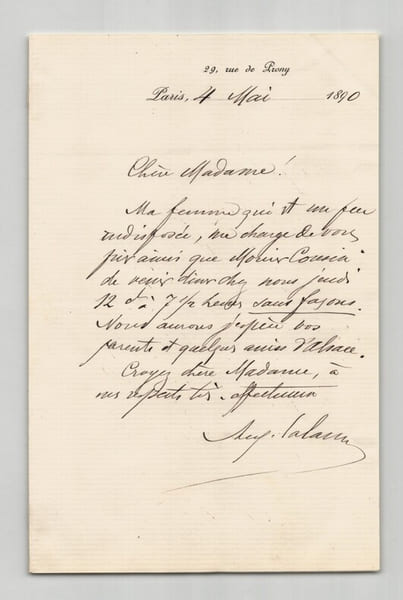 29, rue de Prony
Paris, 4 Mai 1890
Chère Madame!
Ma femme qui est un peu
indisposée, me charge de vous
prier ainsi que Monsieur Cousin
de venir diner chez nous jeudi
12 ct. à 7 1/2 heures sans façons.
Nous aurons j'espère vos
parents et quelques amis d'Alsace.
Croyez chère Madame, à
mes respects très affectueux
Aug.